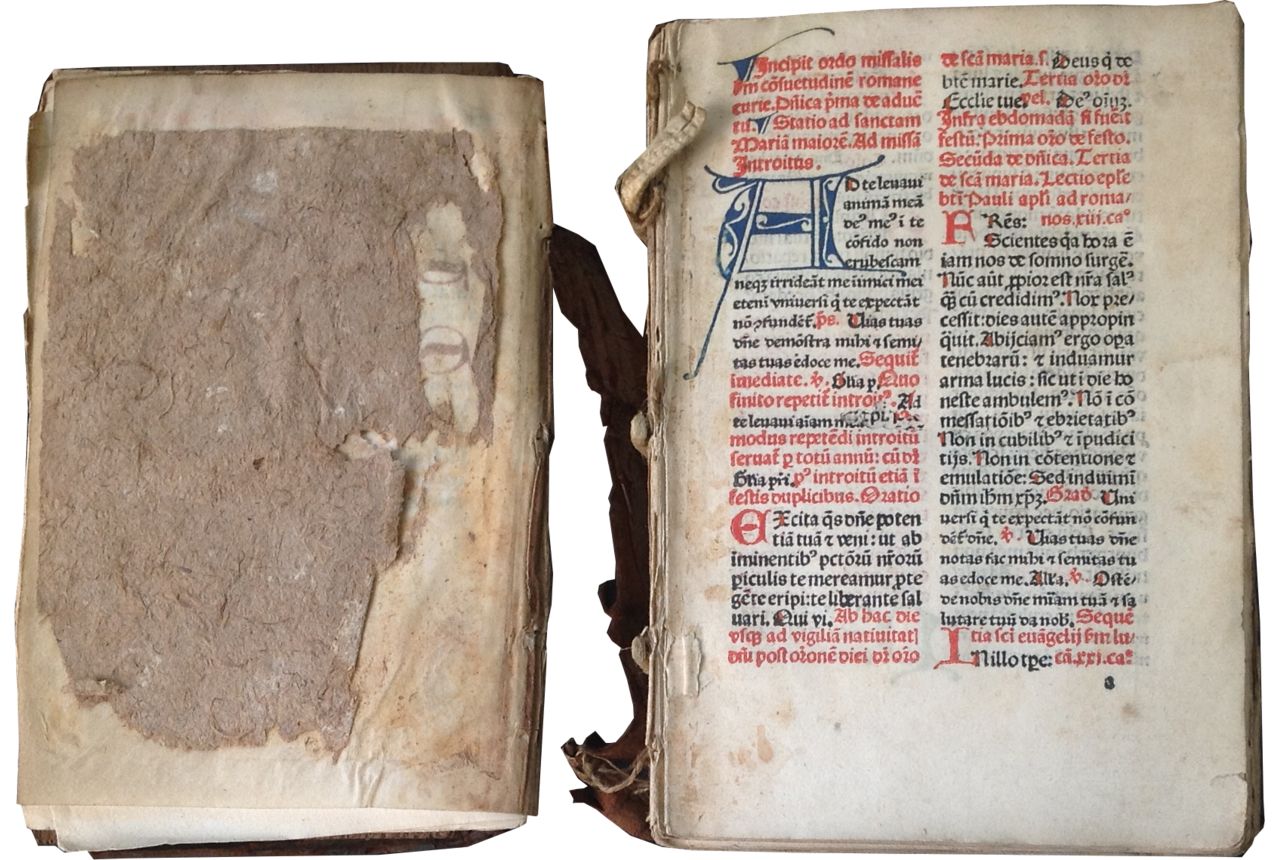 Incipit ordo missalis
ẜm cõsuetudinẽ romane
curie. Dñica p̃ma de aduẽ
tu. Statio ad sanctam
Mariã maiorẽ. Ad missã
Introitus.
AD te leuaui
animã meã
deꝰ meꝰ ĩ te
cõfido non
erubescam
neqꝫ irrideãt me inimici mei
etenĩ vniuersi q̃ te expectãt
nõ ꝯfundẽt̃. ps. Uias tuas
dñe demõstra mihi ⁊ semi/
tas tuas edoce me. Sequit̃
imediate. ℣. Glia p̱. Quo
finito repetit̃ introiꝰ. Ad
te leuaui aiam
modus repetẽdi introitũ
seruat̃ ꝑ totũ annũ: cũ dr̃
Glia pr̃i. pꝰ introitũ etiã ĩ
festis duplicibus. Oratio
EXcita q̃s dñe poten
tiã tuã ⁊ veni: ut ab
iminentibꝰ pctõrũ nr̃orũ
ꝑiculis te mereamur ꝓte
gẽte eripi: te liberante sal
uari. Qui vi. Ab hac die
vsqꝫ ad vigiliã natiuitatꝭ
dñi post or̃onẽ diei dr̃ or̃o
de scã maria. s. Deus q̃ de
btẽ marie. Tertia or̃o dr̃
Ecclie tue. vel. Deꝰ oĩuꝫ.
Infra ebdomadã si fuẽit
festũ: Prima or̃o de festo.
Secũda de dñica. Tertia
de scã maria. Lectio epl̃e
btĩ Pauli apl̃i ad roma/
FRẽs: nos. xiii. caº
Scientes q̃a hora ẽ
iam nos de somno surgẽ.
Nũc aũt ꝓpior est nr̃a salꝰ
q̃ꝫ cũ credidimꝰ. Nox pre/
cessit: dies autẽ appropin
q̃uit. Abijciamꝰ ergo oꝑa
tenebrarũ: ⁊ induamur
arma lucis: sic ut i die ho
neste ambulemꝰ. Nõ ĩ cõ
messatiõibꝰ ⁊ ebrietatibꝰ
Non in cubilibꝰ ⁊ ĩpudici
tijs. Non in cõtentione ⁊
emulatiõe: Sed induimĩ
dñm ih̃m xp̃ꝫ. Grad. Uni
uersi q̃ te expectãt nõ cõfun
dẽt̃ dñe. ℣. Uias tuas dñe
notas fac mihi ⁊ semitas tu
as edoce me. Alľa. ℣. Ostẽ/
de nobis dñe mĩam tuã ⁊ sa
lutare tuũ da nob. Sequẽ
tia scĩ euãgelij ẜm lu/
INillo tpe: cã. xxi. caº
a